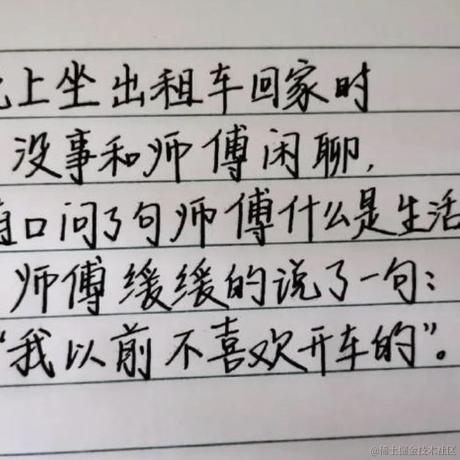 上坐出租车回家时
没事和师傅闲聊，
随口问了句师傅什么是生活
师傅缓缓的说了一句：
“我以前不喜欢开车的”。
@稀土掘金技术社区